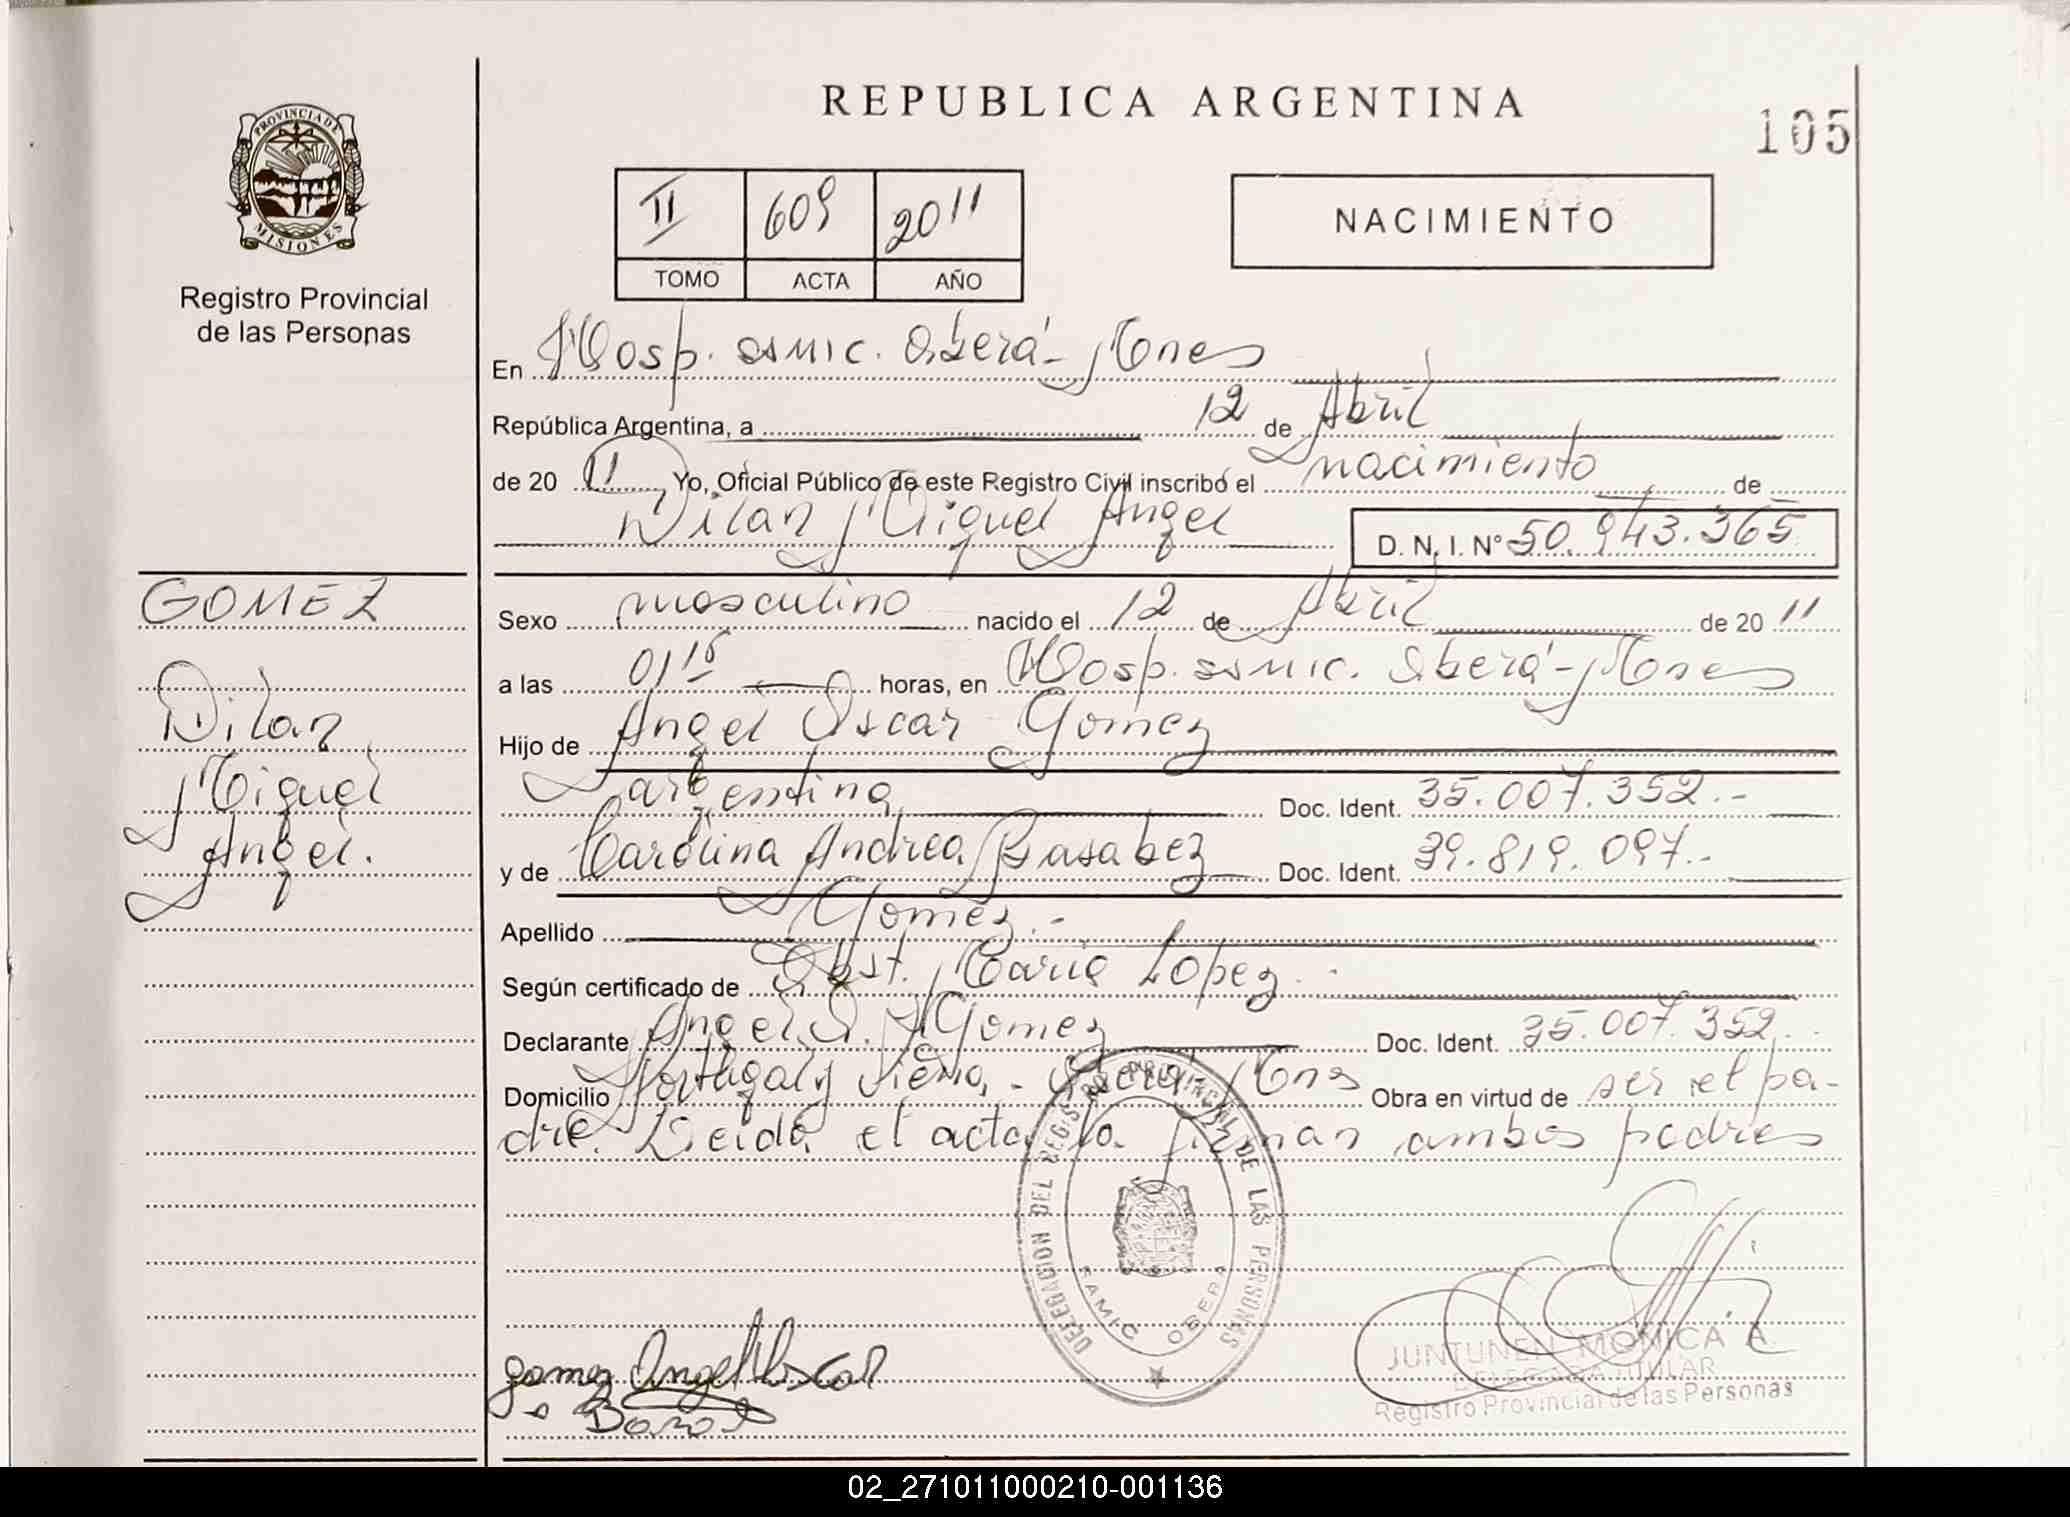 REPUBLICA ARGENTINA
105
PROVINCIA DE
MISIONES
Registro Provincial
de las Personas
II 609 2011
TOMO ACTA AÑO
NACIMIENTO
En Hosp. SAMIC. Oberá - Mnes
República Argentina, a 12 de Abril
de 20 11 Yo, Oficial Público de este Registro Civil inscribó el nacimiento de
Dilan Miguel Angel D. N. I. N° 50.943.365
GOMEZ
Dilan
Miguel
Angel.
Sexo masculino nacido el 12 de Abril de 20 11
a las 01 15 horas, en Hosp. SAMIC. Oberá - Mnes
Hijo de Angel Oscar Gomez
argentina Doc. Ident. 35.007.352.-
y de Carolina Andrea Basabez Doc. Ident. 39.819.097.-
Apellido Gomez.-
Según certificado de Obst. Maria Lopez.
Declarante Angel O. Gomez Doc. Ident. 35.007.352.
Domicilio Portugal y Viena, - Oberá, Mnes Obra en virtud de ser el pa-
dre. Leida el acta la firman ambos padres
DELEGACION DEL REGISTRO PROVINCIAL DE LAS PERSONAS
SAMIC OBERA
gomez Angel Oscar
JUNTUNEN MONICA A.
DELEGADA TITULAR
Registro Provincial de las Personas
02_271011000210-001136